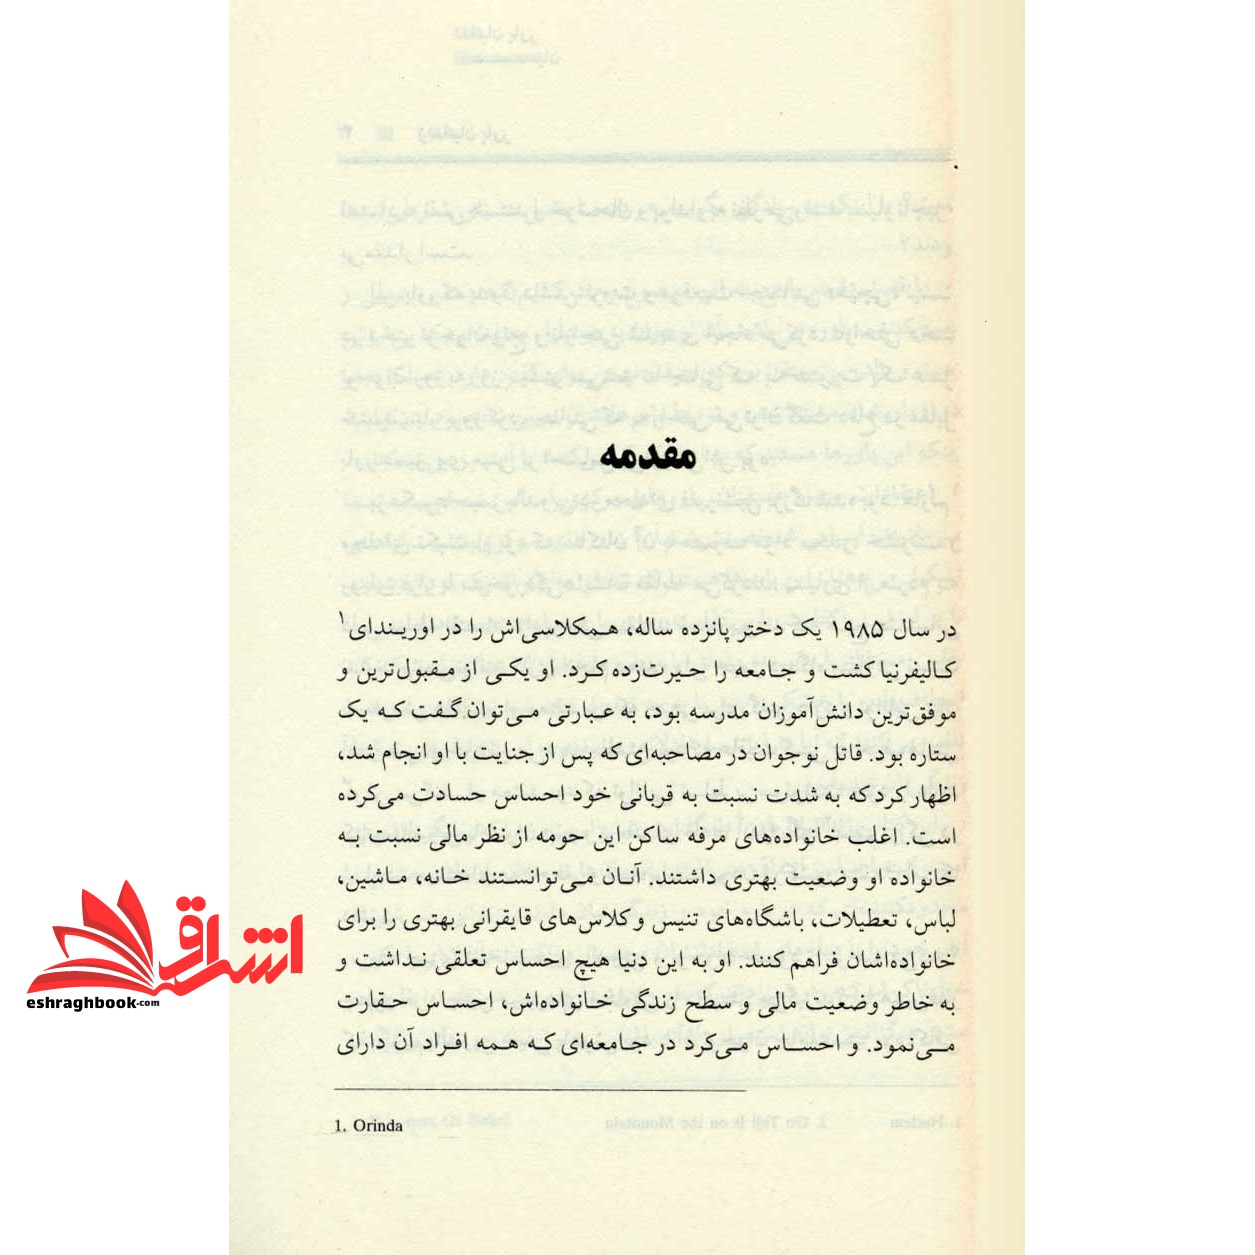 مقدمه
در سال ۱۹۸۵ یک دختر پانزده ساله، همکلاسی‌اش را در اوریندای۱
کالیفرنیا کشت و جامعه را حیرت‌زده کرد. او یکی از مقبول‌ترین و
موفق‌ترین دانش‌آموزان مدرسه بود، به عبارتی می‌توان گفت که یک
ستاره بود. قاتل نوجوان در مصاحبه‌ای که پس از جنایت با او انجام شد،
اظهار کرد که به شدت نسبت به قربانی خود احساس حسادت می‌کرده
است. اغلب خانواده‌های مرفه ساکن این حومه از نظر مالی نسبت به
خانواده او وضعیت بهتری داشتند. آنان می‌توانستند خانه، ماشین،
لباس، تعطیلات، باشگاه‌های تنیس و کلاس‌های قایقرانی بهتری را برای
خانواده‌اشان فراهم کنند. او به این دنیا هیچ احساس تعلقی نداشت و
به خاطر وضعیت مالی و سطح زندگی خانواده‌اش، احساس حقارت
می‌نمود. و احساس می‌کرد در جامعه‌ای که همه افراد آن دارای
1. Orinda
اشراق
eshraghbook.com